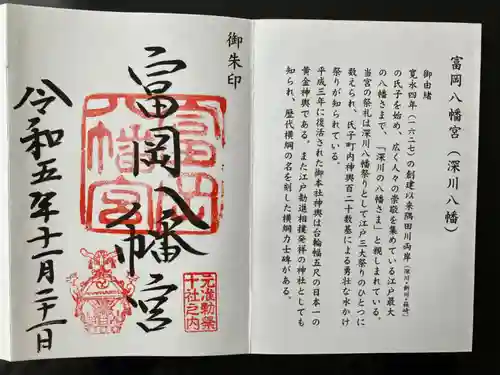 富岡八幡宮（深川八幡）
御由緒
寛永四年（一六二七）の創建以来隅田川両岸（深川・新川・箱崎）
の氏子を始め、広く人々の崇敬を集めている江戸最大
の八幡さまで、「深川の八幡さま」と親しまれている。
当宮の祭礼は深川八幡祭りとして江戸三大祭りのひとつに
数えられ、氏子町内神輿百二十数基による勇壮な水かけ
祭りが知られている。
平成三年に復活された御本社神輿は台輪幅五尺の日本一の
黄金神輿である。また江戸勧進相撲発祥の神社としても
知られ、歴代横綱の名を刻した横綱力士碑がある。
御朱印
富岡八幡宮
富岡
八幡宮
元准勅祭
十社之内
令和五年十一月二十一日